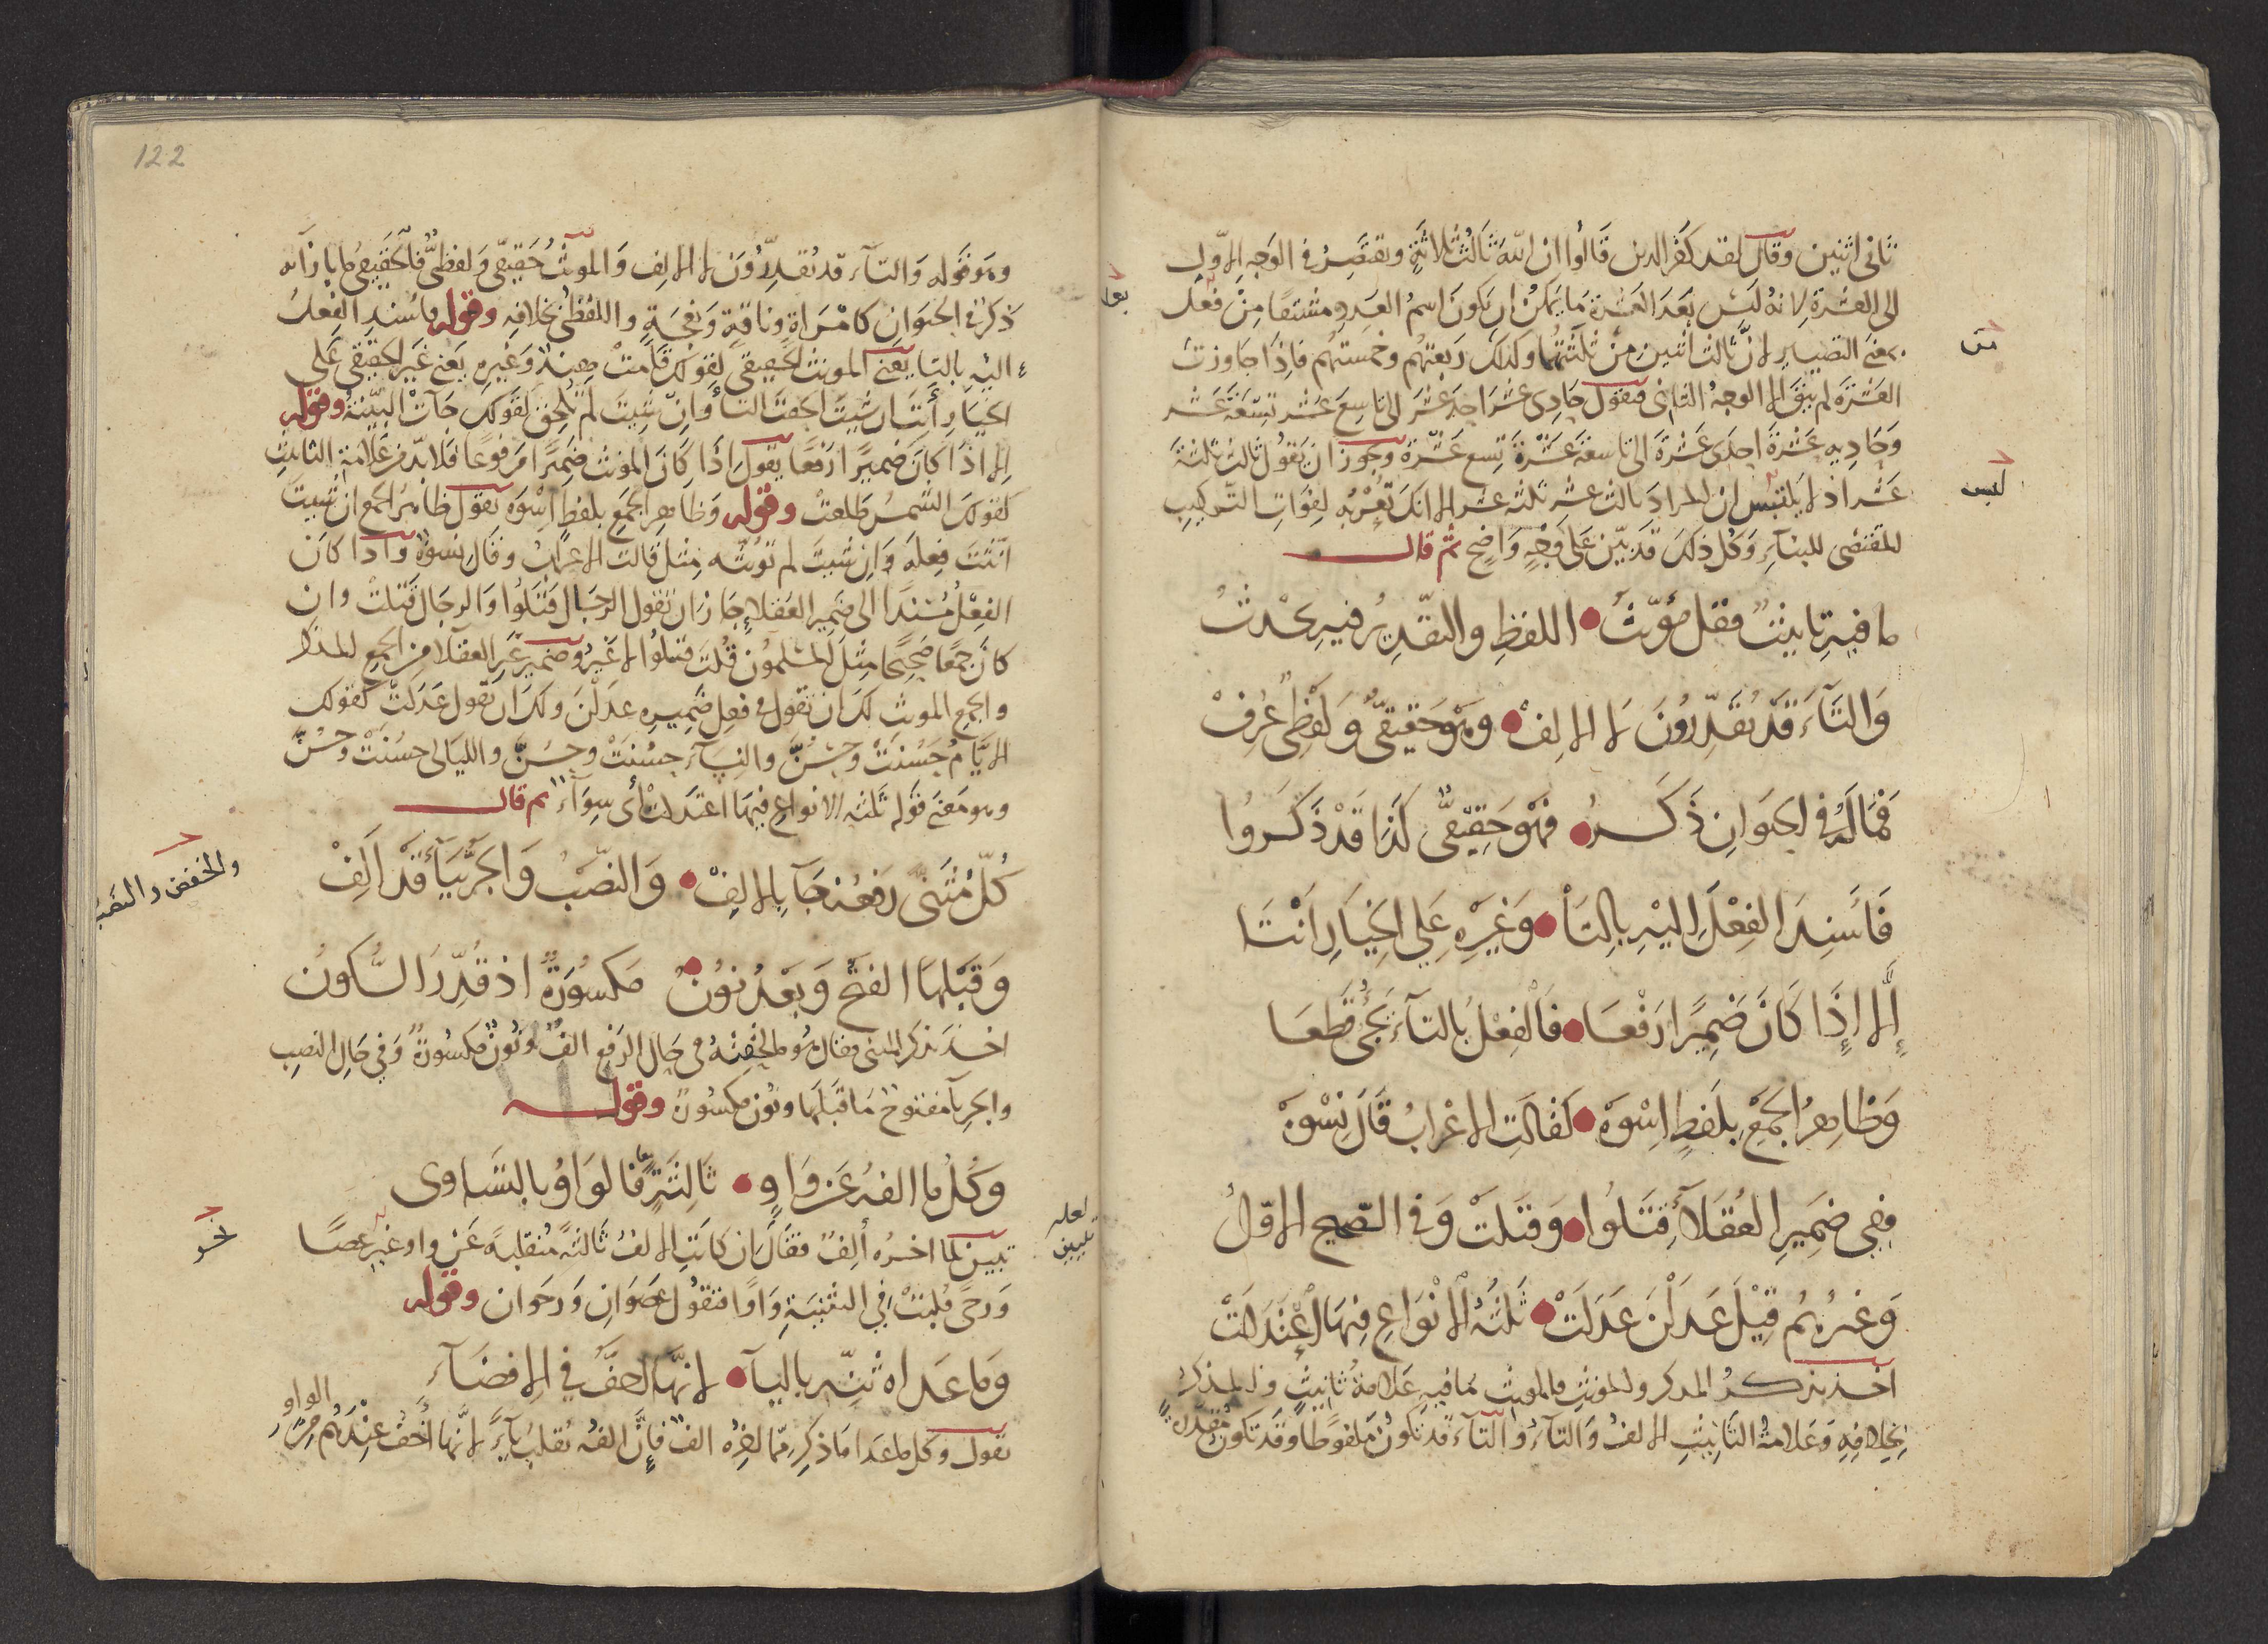 ثَانى اثنين وقال لقد كفر الذين قَالُوا ان اللّه ثَالثُ ثلاثَةٍ ويقتصِرُ في الوَجهِ الاوّلِ
الى العشرةِ لانهُ لَيسَ بَعدَ العَشرة مَا يمكنُ ان يكونَ اسمُ العَددِ مشتقًا مِنْ فعل
بمعنى التصيير لانَّ ثالث اثنين مِنْ ثلثتُهُا وكذلك ربعتهُم وخمستهُم فاذا جاوزت
العَشرَة لم يبقَ الا الوجهُ الثانى فتقول حَادِى عشَر احدَ عَشَر الى تاسِعَ عَشر تسعَةَ عَشر
وَحَاديه عَشْرةَ احدَى عَشْرَة الى تاسعَةَ عَشْرَة تِسع عَشْرَة وَيجُوز ان يَقُول ثالث ثلثةَ
عَشر اذ لا يلتبس ان المراد ثالث عشر ثلثه عشر الا انك تُعْرِبُه لِفَواتِ التّركيبِ
المقتضى للبنآءِ وَكل ذلكَ قد بيّن عَلى وَجْهٍ وَاضحٍ ثم قال
ما فيهِ تانيثٌ فقل مؤنّثُ اللفظِ والتقديرُ فيهِ يحْدثُ
وَالتَّآءَ قَدْ يُقَدِّرُونَ لا الالِفْ وهوَ حَقيقيٌّ وَلَفْظِيٌّ عُرِفْ
فَمَا لَهُ في الحَيَوَانِ ذَكَرُ فهْوَ حَقيْقىٌّ كَذَا قَدْ ذَكَرُوا
فَأَسنِدَ الفِعْلَ اليْهِ بالتَأ وَغيرِهِ عَلى الخِيَارِ انْتَا
إلّا إذَا كَانَ ضَمِيرًا رَفْعَا فَالفِعْلُ بالتآءِ يجئُ قَطعَا
وَظَاهِرُ الجَمْعِ بِلَفظٍ اسْوَهْ كَقَالَتِ الاعْرَابُ قَالَ نِسْوَهْ
ففِي ضَمِيرِ العُقَلآءِ قتَلُوا وَقَتلتْ وَفي الصّحيحِ الاوّلُ
وَغيرُهُم قِيْلَ عَدَلْنَ عَدَلَتْ ثَلثَةُ الانْوَاعِ فيهَا اعْتَدَلَتْ
اخذ يذكُرُ المذكر والمونث فالمونث مَا فيهِ عَلامَةُ تَانيثٍ والمذكر
بِخلافِهِ وَعَلامةُ التَانيثِ الالفُ وَالتآء والتآء قد تكونُ مَلفُوظًا وقَد تكون مُقدّرةً
من
لبس
122
وهو قوله وَالتآءَ قد يُقدِّرُوَن لا الالِف وَالمونثُ حَقيقىّ وَلفظىٌّ فالحَقيقىُ ما بازآئه
ذكرٌ في الحيَوَانِ كامْرَاةٍ وناقةٍ وَنَعْجَةٍ واللفظىُ بخلافه وقوله فاسندِ الفِعلَ
اليهِ بالتا يَعنى المونث الحقيقى كقولك قَامت هِندٌ وَغَيرِهِ يَعنى غيَر الحقيقى عَلى
الخيَارِ أنتَا ان شيتَ الحقتَ التا وانْ شِيتَ لم تُلحِق كقولك جآت البيّنةُ وقوله
الا اذَا كانَ ضميرًا رَفعًا يقول اذا كَانَ المونث ضميرًا مَرفوعًا فلا بدّ من عَلامة التانيثِ
كقولكَ الشمسُ طلعَتْ وقوله وظَاهِر الجمعِ بلفظٍ اسْوَه يقول ظاهر الجمع ان شيتَ
انّثتَ فِعلَه وَان شيتَ لم تونثه مِثلُ قالت الاعرابُ وقَالَ نسوةٌ واذا كان
الفِعْلُ مُسْنَدًا الى ضمير العُقلاءِ جَازَ ان تقول الرجَال قتلُوا وَالرجَال قتلتْ وان
كانَ جمعًا صَحيحًا مِثلَ المسْلمُون قُلتَ قتلُوا لا غَيرُ وضميرُ غير العقلا من الجمع المذكر
والجمعِ المونث لكَ ان تقول في فعل ضَمِيره عدَلْنَ ولكَ ان تقول عَدَلتْ كقولك
الايّامُ حَسُنَتْ وحَسُنَّ والنِسَآء حسُنَتْ وحسُنَّ والليَالى حسُنَتْ وحَسُنَّ
وهو مَعنى قوله ثلثه الانواعِ فيهَا اعتَدلتْ أى سِوَآء ثم قال
كُلُّ مُثَنّىً رَفعُهُ جَآ بالالِفْ وَالنّصْبُ وَالجَرُّ بيَآءٍ قَدْ الَفِفْ
وَقَبْلهَا الفتحُ وَبَعْدُ نوُنُ مَكسُوَرةٌ اذ قُدِّرَ السُّكونُ
اخذ يذكر المثنى فقال هُو ما لحقتْهُ فى حَالِ الرّفعِ الفٌ ونُونٌ مكسُورةٌ وَفي حَالِ النصبِ
والجَرِ يآ مفتوح مَا قبَلهَا ونُون مكسُورةٌ وقوله
وَكُلُ ما الفُهُ عَن وَاوِ ثَالِثَةٍ فالوَاوُ بالتَسَاوى
تبيين لما اخرُه أَلِفٌ فقَالَ ان كانَتِ الالفُ ثَالثةً مُنقلبةً عَنْ واوٍ غير عصًا
وَرحىً قُلبتْ في التثنيَةِ وَاوًا فتقُول عَصَوَانِ وَرحَوَان وقوله
وَما عَداه ثنّه باليآءِ لانّهَا اخفُّ في الافضَآءِ
يقول وكل ما عدَا مَا ذكِر ممّا اخِرُه الفٌ فإنَّ الفهُ تُقلبُ يآءً لانّها أخَفُ عِنْدَهُم مِنَ
الواو
والخفض والنصب
لعله
تبيين
نحو